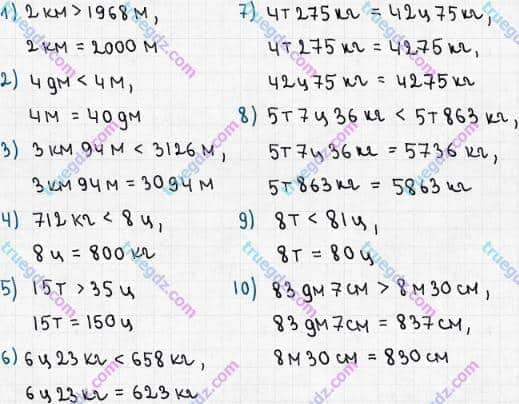 1) 2 км > 1968 м,
2 км = 2000 м
2) 4 дм < 4 м,
4 м = 40 дм
3) 3 км 94 м < 3126 м,
3 км 94 м = 3094 м
4) 712 кг < 8 ц,
8 ц = 800 кг
5) 15 т > 35 ц
15 т = 150 ц
6) 6 ц 23 кг < 658 кг,
6 ц 23 кг = 623 кг
7) 4 т 275 кг = 42 ц 75 кг,
4 т 275 кг = 4275 кг,
42 ц 75 кг = 4275 кг
8) 5 т 7 ц 36 кг < 5 т 863 кг,
5 т 7 ц 36 кг = 5736 кг,
5 т 863 кг = 5863 кг
9) 8 т < 81 ц,
8 т = 80 ц
10) 83 дм 7 см > 8 м 30 см,
83 дм 7 см = 837 см,
8 м 30 см = 830 см
truegdz.com